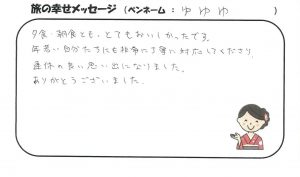 旅の幸せメッセージ（ペンネーム：ゆゆゆ）
夕食・朝食とも、とてもおいしかったです。
年若い自分たちにも非常に丁寧に対応してくださり、
連休の良い思い出になりました。
ありがとうございました。